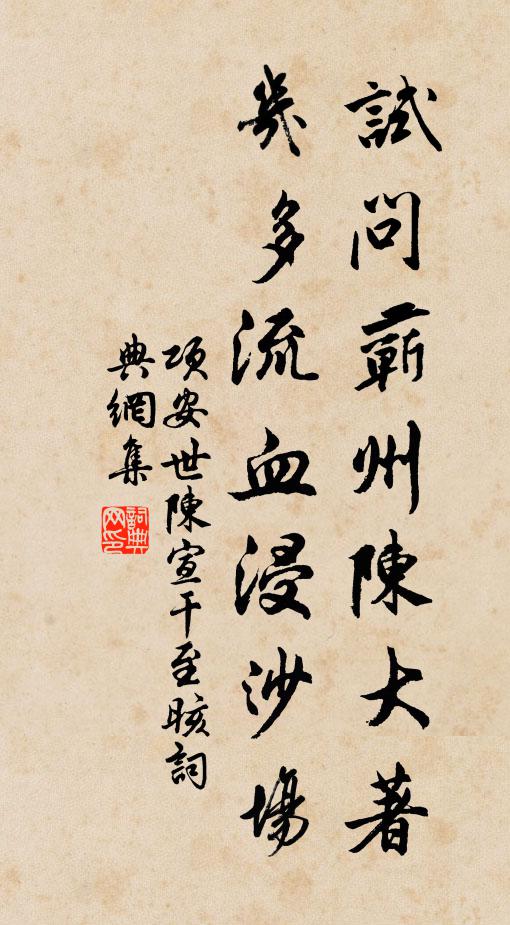 試問蘄州陳大著
幾多流血浸沙場
項安世陳宣干至眩詞
典網集
詞典網印